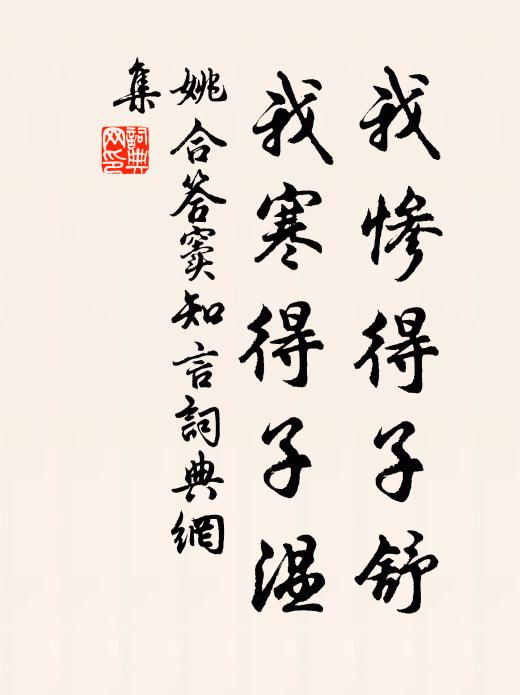 我慘得子舒
我寒得子温
姚合答竇知言詞典網
集
詞典網印